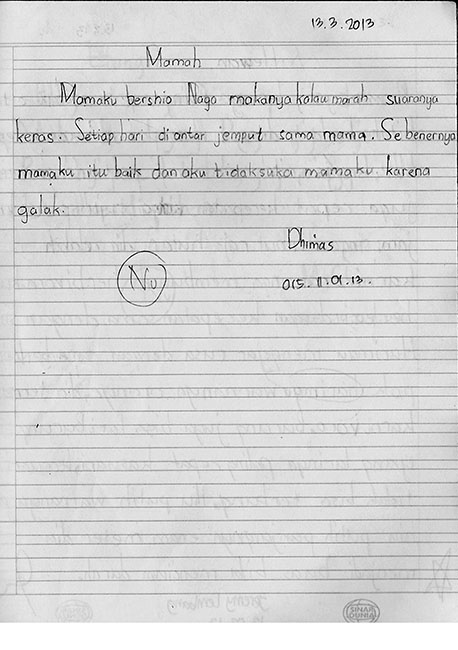 13.3.2013
Mamah
Mamaku bershio Naga makanya kalau marah suaranya
keras. Setiap hari diantar jemput sama mama. Sebenernya
mamaku itu baik dan aku tidak suka mamaku karena
galak.
Dhimas
Nu
015.11.01.13.
SINAR
DUNIA